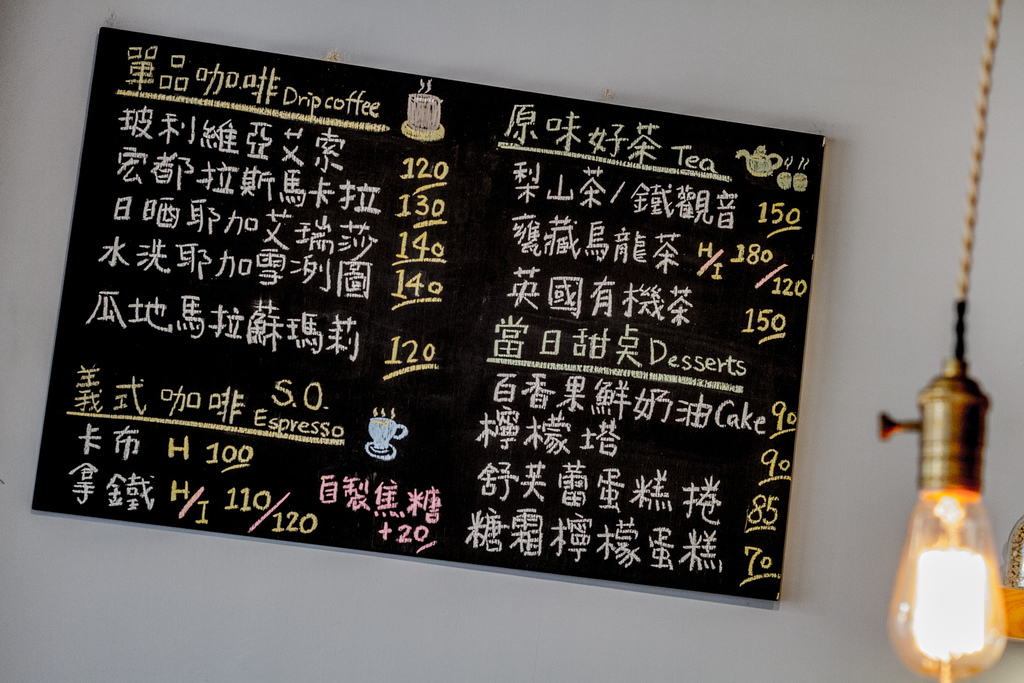 單品咖啡 Drip coffee
玻利維亞艾索 120
宏都拉斯馬卡拉 130
日晒耶加艾瑞莎 140
水洗耶加雪冽圖 140
瓜地馬拉蘇瑪莉 120
義式咖啡 S.O. Espresso
卡布 H 100
拿鐵 H/I 110/120
自製焦糖 +20
原味好茶 Tea
梨山茶/鐵觀音 150
甕藏烏龍茶 H/I 180/120
英國有機茶 150
當日甜桌 Desserts
百香果鮮奶油Cake 90
檸檬塔 90
舒芙蕾蛋糕捲 85
糖霜檸檬蛋糕 70